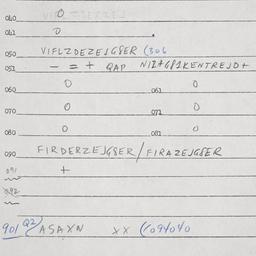 040 0
041 0
050 VIFLZDEZEJG8ER (306
051 - = + QAP NIZ+G81KENTREJD+
060 0 061 0
070 0 071 0
080 0 081 0
090 FIRDERZEJG8ER/FIRAZEJG8ER
091 +
092
901 Q2 ASAXN XX (094040